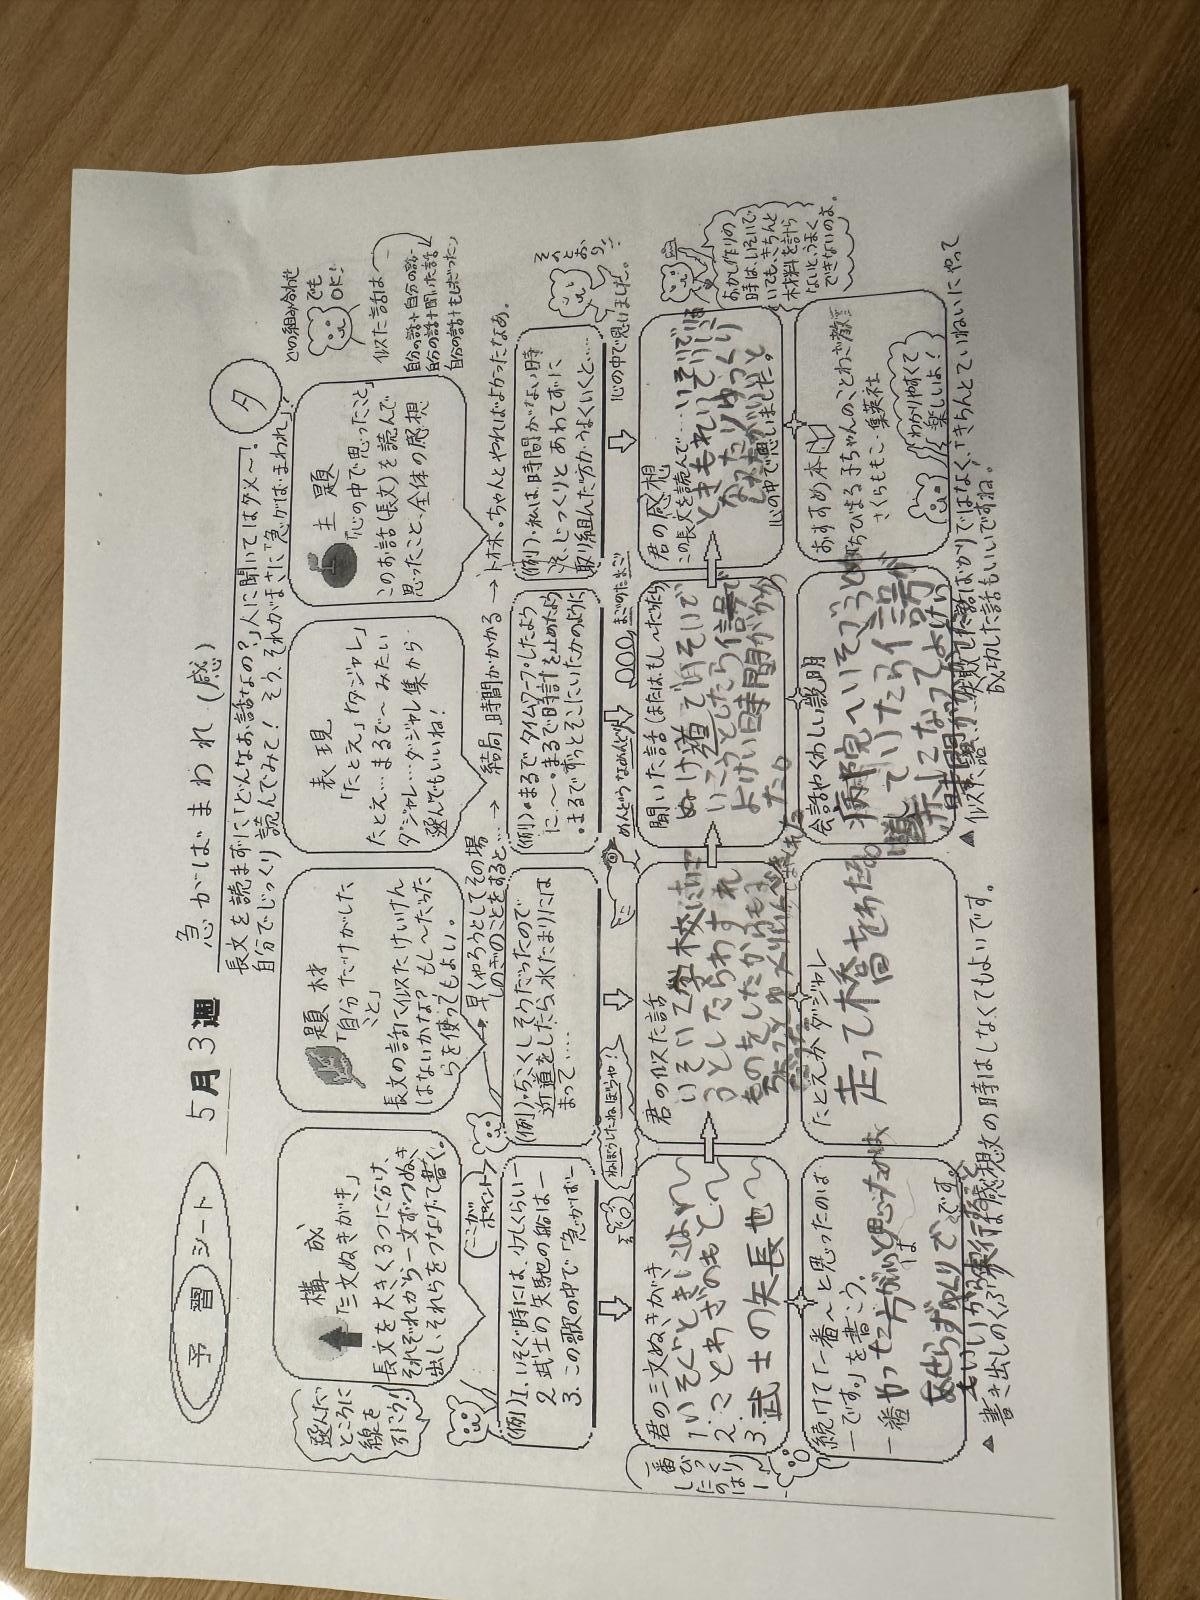 予習シート
5月3週
急がばまわれ(感)
タ
長文を読まずに「どんなお話なの?」人に聞いてはダメ〜!
自分でじっくり読んでみて!そう、それがまさに「急がば・まわれ」?
選んだ
ところに
線を
引こう!
構成
「三文ぬきがき」
長文を大きく3つに分け、
それぞれから一文ずつぬき
出し、それらをつなげて書く。
題材
「自分だけがした
こと」
長文の話に似たけいけん
はないかな?もし〜だったた
らを使ってもよい。
表現
「たとえ」「ダジャレ」
たとえ…まるで〜みたい
ダジャレ…ダジャレ集から
選んでもいいね!
主題
「心の中で思ったこと」
このお話(長文)を読んで
思ったこと、全体の感想
どの組み合わせ
でも
OK!
似た話は
自分の話+自分の話
自分の話+聞いた話
自分の話+もしだったら
ここが
ポイント
早くやろうとしてその場
しのぎのことをすると… → 結局時間がかかる → トホホ。ちゃんとやればよかったなあ。
(例)1.いそぐ時には、少しくらいー
2.武士の矢馳の船はー
3.この歌の中で「急がばー
(例)・ちこくしそうだったので
近道をしたら、水たまりには
まって……
(例)・まるでタイムワープしたよう
に、〜・まるで時計を止めたよう
・まるでずっとそこにいたかのように
(例)・私は、時間がない時
ほど、じっくりとあわてずに
取り組んだ方がうまくいくと……
心の中で思いました。
そのとおり!
ねぼうしたねぼすけ!
めんどうなめんどり
○○○,まごのたまご
君の三文ぬきがき
1.いそぐときには〜
2.ことわざのもと〜
3.武士の矢長也〜
君の似た話
いそいで学校に行こ
うとしたらわすれ
ものをしたからもう
聞いた話(または、もし〜だったら)
ぬけ道で いそいで
いこうとしたら信号で
よけい時間がかかっ
た。
君の感想
この長文を読んで…いそいでい
ときもれいせいに
なったりゆっくり
心の中で思いましたと。
おかし作りの
時は、いそいで
いても、きちんと
材料を計ら
ないと、うまく
できないのよ。
一番
びっくり
したの
はー
続けて「一番〜と思ったのは
ーです。」を書こう。
一番やった方がいいと思ったのは
あせらずゆっくりです。
たとえかダジャレ
走って橋をわたる
会話やくわしい説明
病院へいそごうと
していたら信号が
赤になってよけい
時間がかかった
おすすめ本
ちびまる子ちゃんのことわざ教室
さくらももこ 集英社
わかりやすくて
楽しいよ!
▲ 書き出しのくふうは感想文の時はしなくてもよいです。
▲ 似た話…失敗した話ばかりではなく、きちんとていねいにやって
成功した話もいいですね!